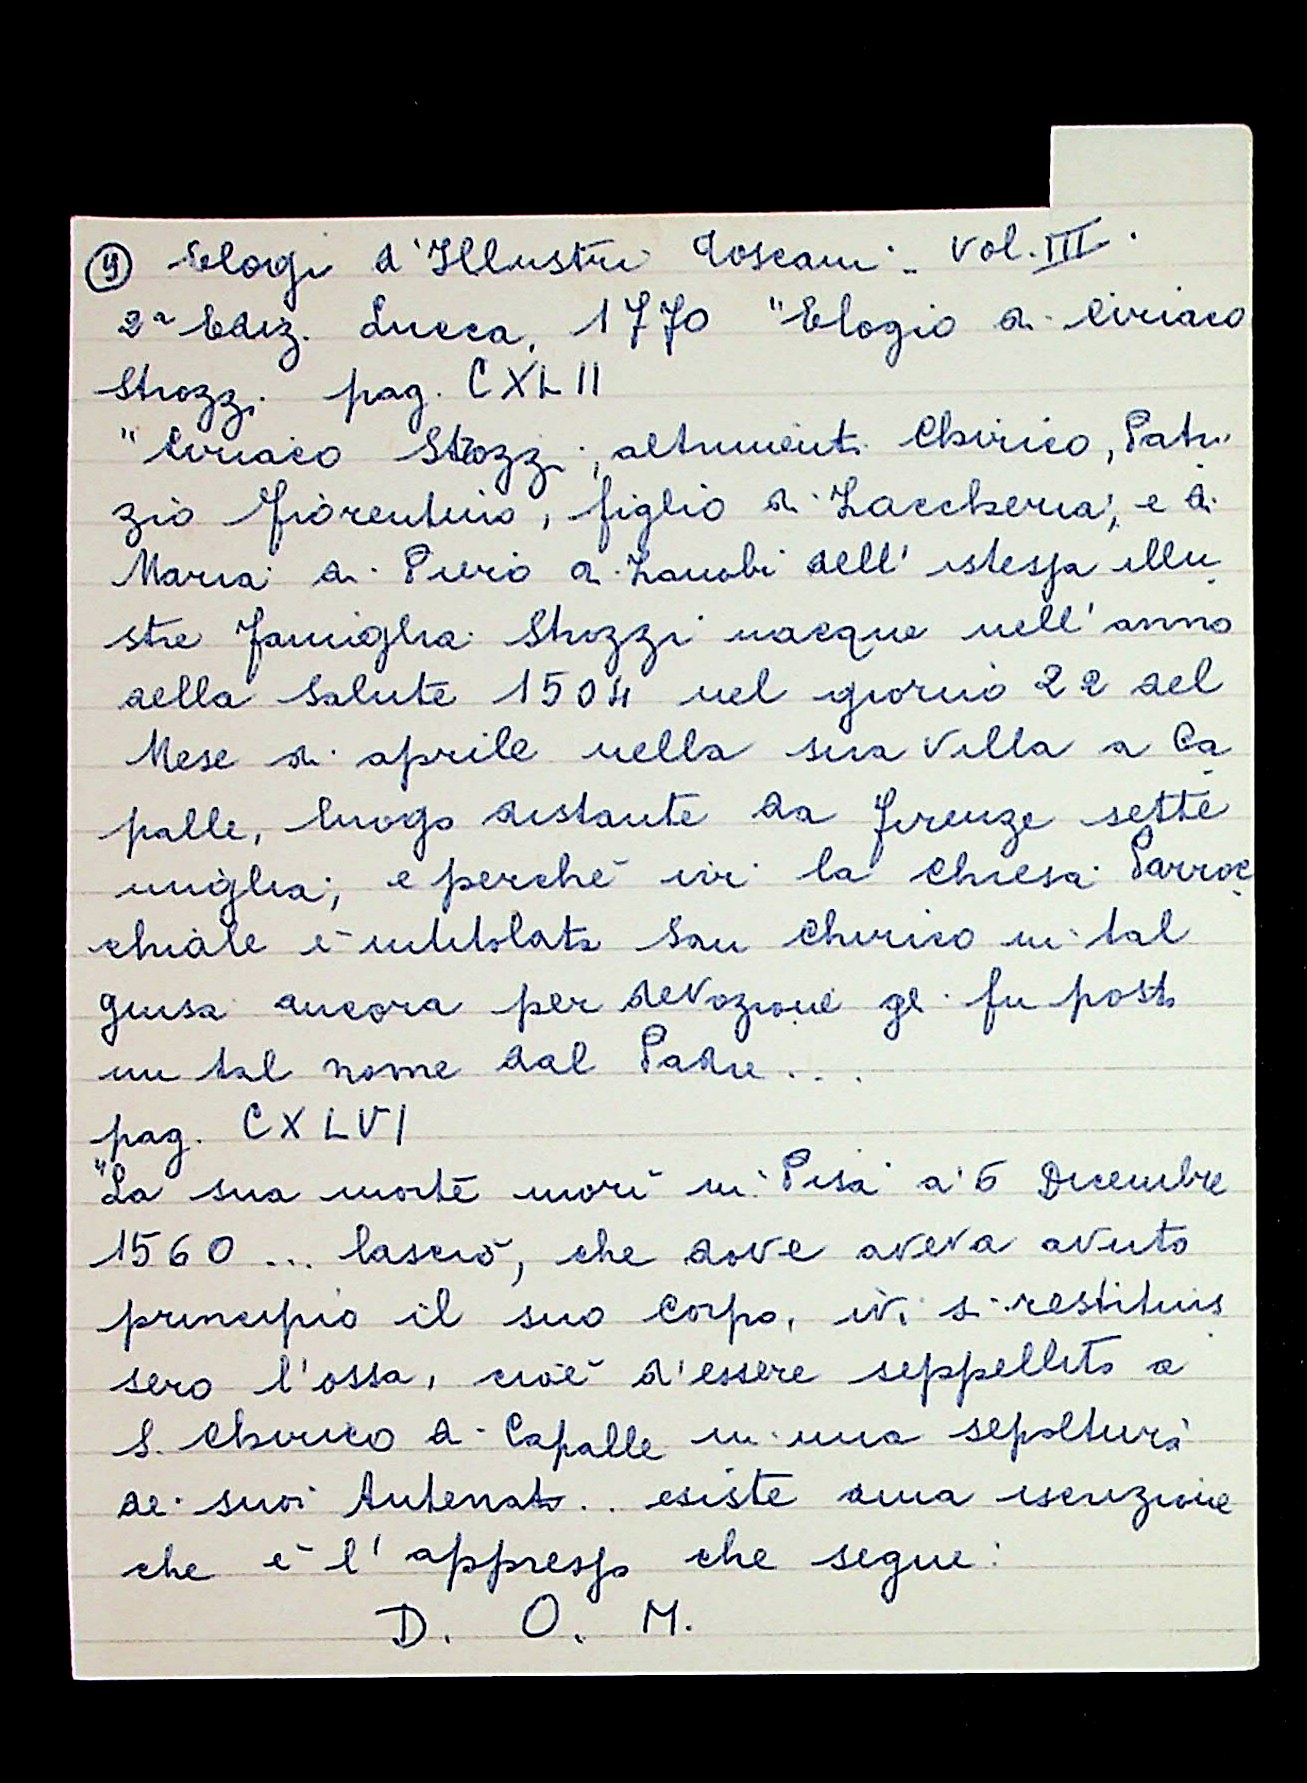 9 Elogi d'Illustri Toscani. Vol. III.
2a Ediz. Lucca, 1770 "Elogio di Ciriaco
Strozzi. pag. CXLII
"Ciriaco Strozzi, altrimenti Chirico, Patri
zio fiorentino, figlio di Zaccheria, e di
Maria di Piero di Zanobi dell' istessa illu
stre famiglia Strozzi nacque nell'anno
della Salute 1504 nel giorno 22 del
Mese di aprile nella sua villa a Ca
palle, luogo distante da firenze sette
miglia; e perchè ivi la Chiesa Parroc
chiale è intitolata San Chirico in tal
guisa ancora per devozione gli fu posto
un tal nome dal Padre....
pag. CXLVI
"La sua morte morì in Pisa a' 6 Dicembre
1560 ... lasciò, che dove aveva avuto
principio il suo Corpo, ivi si restituis
sero l'ossa, cioè d'essere seppellito a
S. Chirico di Capalle in una sepoltura
dei suoi Antenati... esiste una iscrizione
che è l'appresso che segue:
D. O. M.